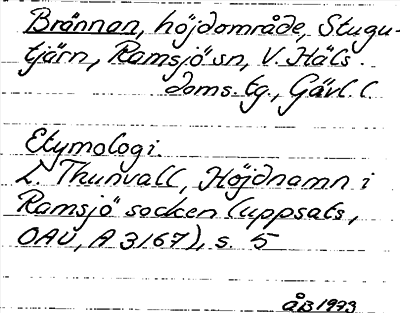 Brännan, höjdområde, Stugu-
tjärn, Ramsjö sn, V. Häls.
doms. tg., Gävl. l.
Etymologi.
L. Thunvall, Höjdnamn i
Ramsjö socken (uppsats,
OAU, A 3167), s. 5
ÅB 1973